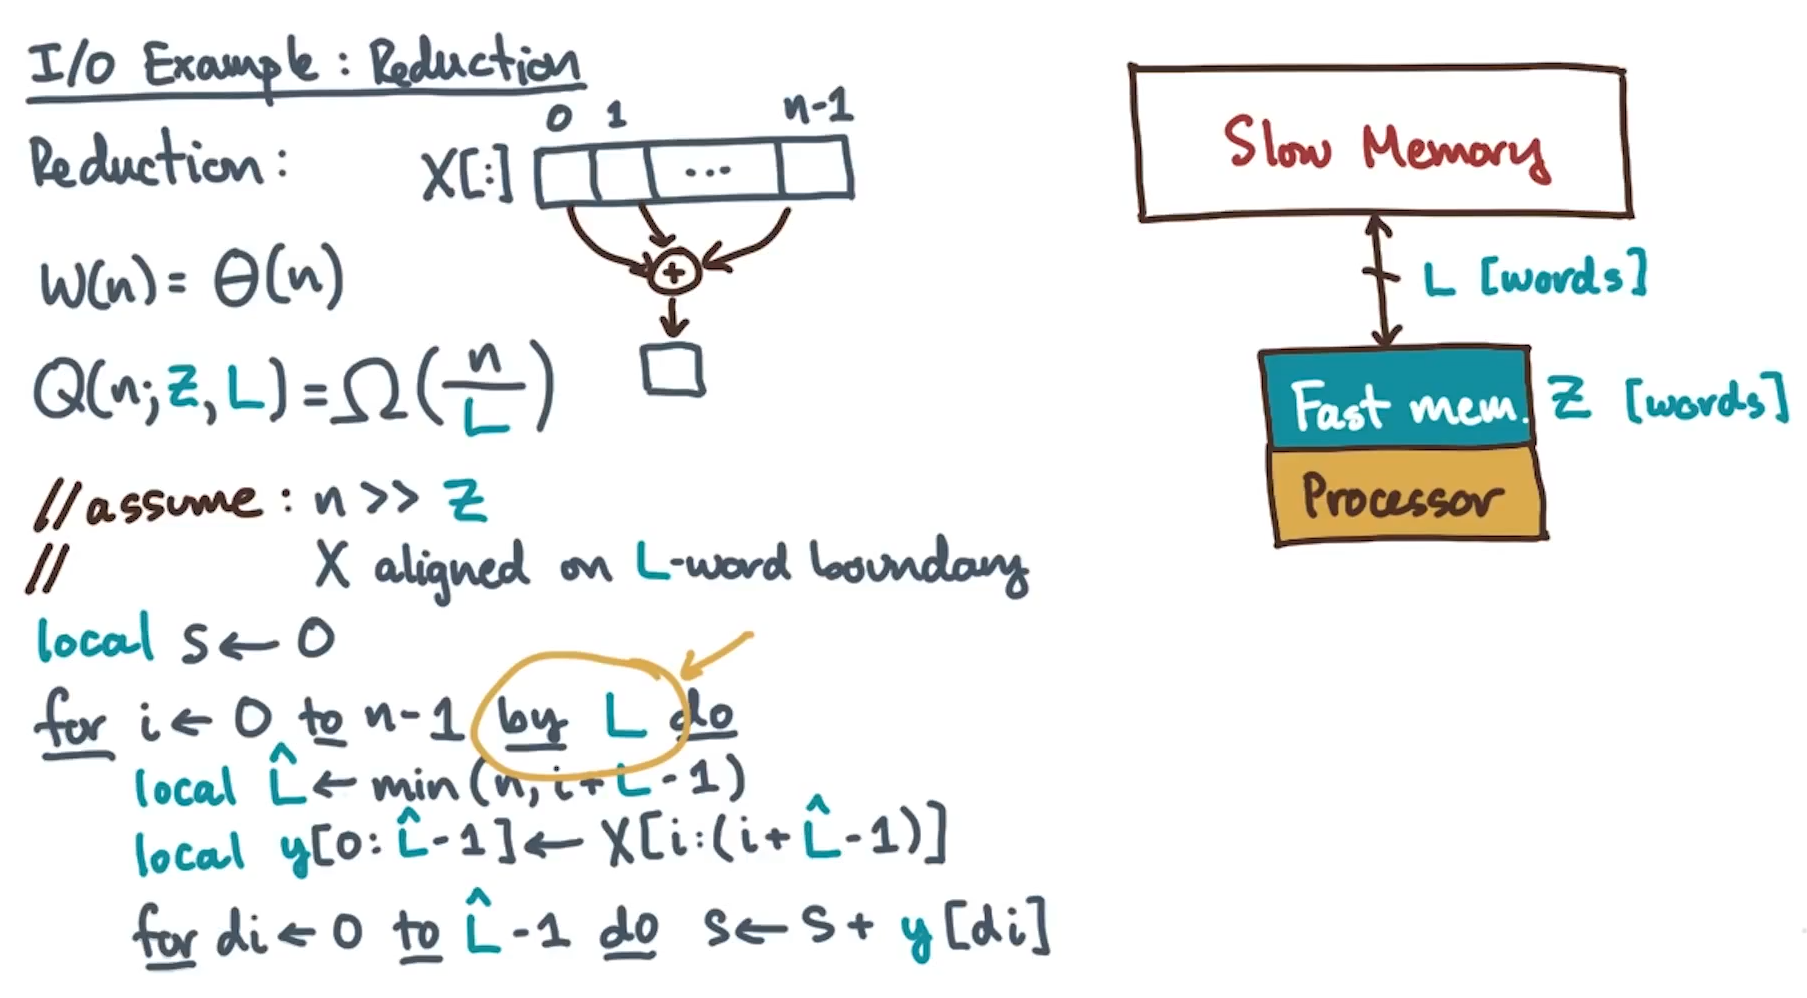 I/O Example: Reduction
Reduction:
0 1 n-1
X[:] ...
+
W(n)= Θ(n)
Q(n; Z, L) = Ω(n/L)
//assume: n >> Z
// X aligned on L-word boundary
local s ← 0
for i ← 0 to n-1 by L do
local L̂ ← min(n, i+L-1)
local y[0:L̂-1] ← X[i:(i+L̂-1)]
for di ← 0 to L̂-1 do s ← s + y[di]
Slow Memory
L [words]
Fast mem. Z [words]
Processor